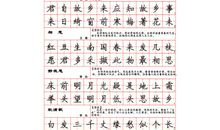 君自故乡来应知故乡事
来日绮窗前寒梅著花未
相思
红豆生南国春来发几枝
愿君多采撷此物最相思
静夜思
床前明月光疑是地上霜
举头望明月低头思故乡
秋浦歌
白发三千丈缘愁似个长